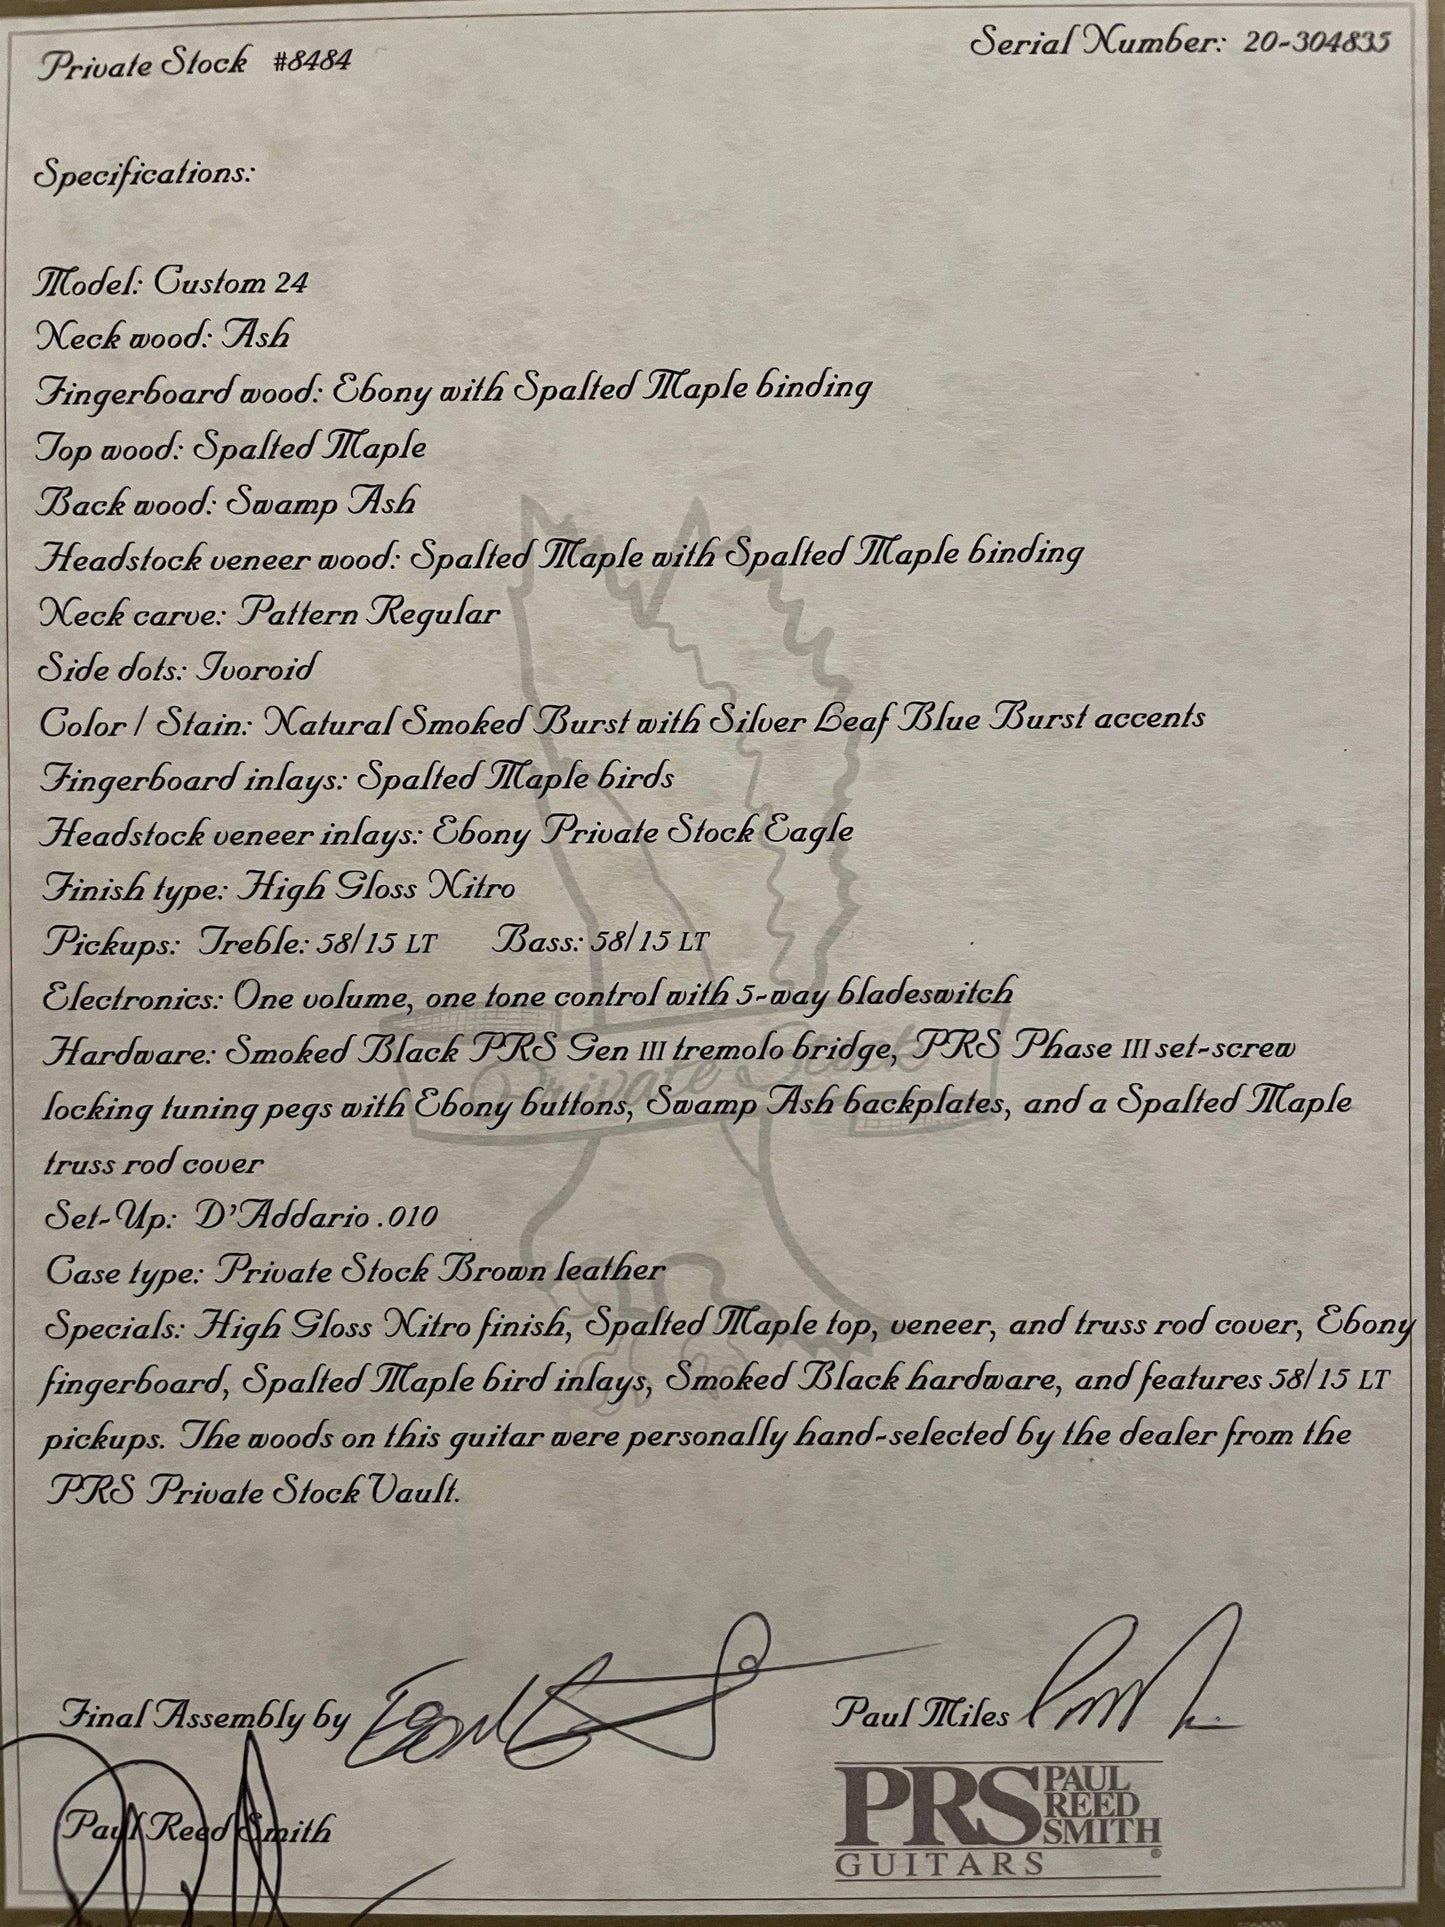 Private Stock #8484
Serial Number: 20-304835
Specifications:
Model: Custom 24
Neck wood: Ash
Fingerboard wood: Ebony with Spalted Maple binding
Top wood: Spalted Maple
Back wood: Swamp Ash
Headstock veneer wood: Spalted Maple with Spalted Maple binding
Neck carve: Pattern Regular
Side dots: Ivoroid
Color / Stain: Natural Smoked Burst with Silver Leaf Blue Burst accents
Fingerboard inlays: Spalted Maple birds
Headstock veneer inlays: Ebony Private Stock Eagle
Finish type: High Gloss Nitro
Pickups: Treble: 58/15 LT Bass: 58/15 LT
Electronics: One volume, one tone control with 5-way bladeswitch
Hardware: Smoked Black PRS Gen III tremolo bridge, PRS Phase III set-screw
locking tuning pegs with Ebony buttons, Swamp Ash backplates, and a Spalted Maple
truss rod cover
Set-Up: D'Addario .010
Case type: Private Stock Brown leather
Specials: High Gloss Nitro finish, Spalted Maple top, veneer, and truss rod cover, Ebony
fingerboard, Spalted Maple bird inlays, Smoked Black hardware, and features 58/15 LT
pickups. The woods on this guitar were personally hand-selected by the dealer from the
PRS Private Stock Vault.
Private Stock
Final Assembly by
Paul Miles
Paul Reed Smith
PRS PAUL
REED
SMITH
GUITARS